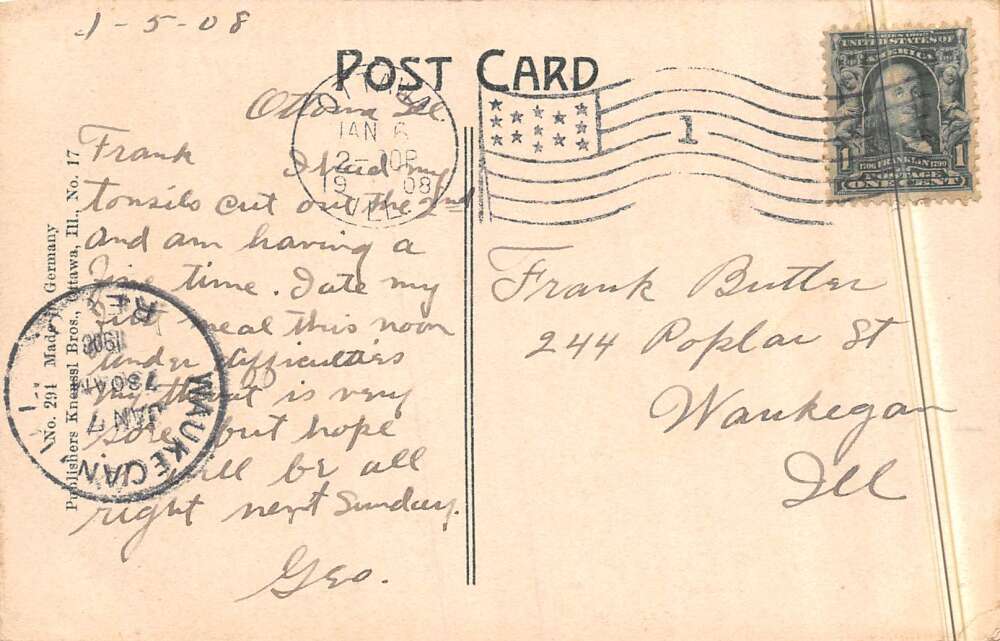 1-5-08
POST CARD
Ottawa Ill.
OTTAWA
JAN 6
2-30P
19 08
ILL.
1
SERIES 1902
UNITED STATES OF
AMERICA
1706 FRANKLIN 1790
1 POSTAGE 1
ONE CENT
Frank I had my
tonsils cut out the 2nd
and am having a
fine time. I ate my
first meal this noon
under difficulties
My throat is very
sore but hope
will be all
right next Sunday.
Geo.
Frank Butler
244 Poplar St
Waukegan
Ill
No. 291 Made in Germany
Publishers Kneussl Bros., Ottawa, Ill., No. 17
WAUKEGAN
JAN 7
730AM
1908